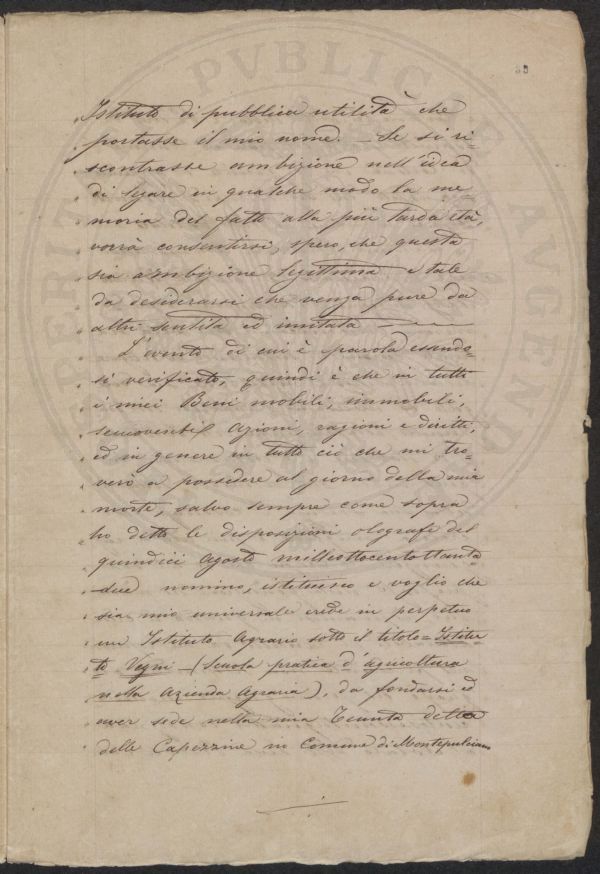 Istituto di pubblica utilità che
portasse il mio nome. — Se si ri-
scontrasse ambizione nell'idea
di legare in qualche modo la me
moria del fatto alla più tarda età,
vorrà consentirsi, spero, che questa
sia ambizione legittima e tale
da desiderarsi che venga pure da
altri sentita ed imitata
L'evento di cui è parola essendo-
si verificato, quindi è che in tutti
i miei Beni mobili, immobili,
semoventi Azioni, ragioni e diritti,
ed in genere in tutto ciò che mi tro-
verò a possedere al giorno della mia
morte, salvo sempre come sopra
ho detto le disposizioni olografe del
quindici Agosto milleottocentottanta
due nomino, istituisco e voglio che
sia mio universale erede in perpetuo
un Istituto Agrario sotto il titolo = Istitu
to Vegni — (Scuola pratica d'agricoltura
nella Azienda Agraria), da fondarsi ed
aver sede nella mia Tenuta detta
delle Capezzine in Comune di Montepulciano
PVBLICAE